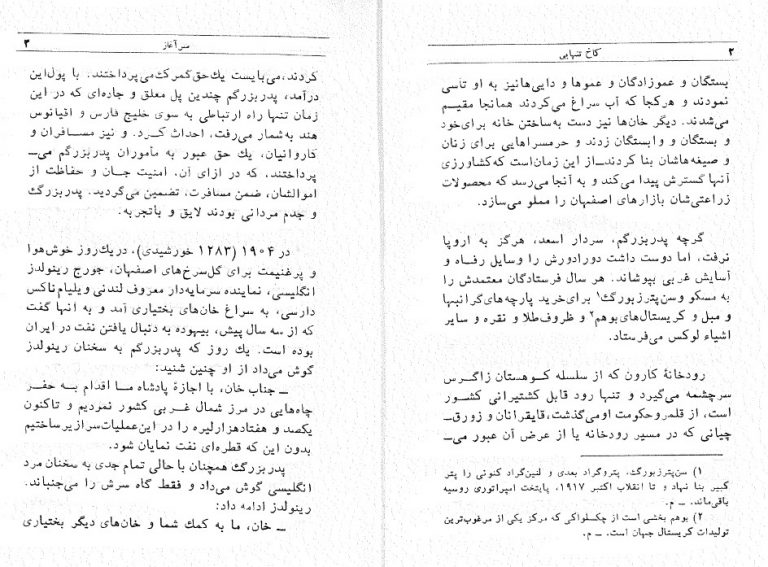 ۲
کاخ تنهایی
بستگان و عموزادگان و عموها و دایی‌هانیز به او تأسی
نمودند و هرکجا که آب سراغ می‌کردند همانجا مقیم
می‌شدند. دیگر خان‌ها نیز دست به‌ساختن خانه برای‌خود
و بستگان و وابستگان زدند و حرمسراهایی برای زنان
و صیغه‌هاشان بنا کردند ـ از این زمان‌است که‌کشاورزی
آنها گسترش پیدا می‌کند و به آنجا می‌رسد که محصولات
زراعتی‌شان بازارهای اصفهان را مملو می‌سازد.
گرچه پدربزرگم، سردار اسعد، هرگز به اروپا
نرفت، اما دوست داشت دورادورش را وسایل رفاه و
آسایش غربی بپوشاند. هر سال فرستادگان معتمدش را
به مسکو وسن‌پترزبورگ۱ برای‌خرید پارچه‌های‌گرانبها
و مبل و کریستال‌های‌بوهم۲ و ظروف‌طلا و نقره و سایر
اشیاء لوکس می‌فرستاد.
رودخانهٔ کارون که از سلسله کوهستان زاگرس
سرچشمه می‌گیرد و تنها رود قابل کشتیرانی کشور
است، از قلمروحکومت اومی‌گذشت، قایقرانان و زورق‌ـ
چیانی که در مسیر رودخانه یا از عرض آن عبور می‌ـ
۱) سن‌پترزبورگ، پتروگراد بعدی و لنین‌گراد کنونی را پتر
کبیر بنا نهاد و تا انقلاب اکتبر ۱۹۱۷، پایتخت امپراتوری روسیه
باقی‌ماند. ـ م.
۲) بوهم بخشی است از چکسلواکی که مرکز یکی از مرغوب‌ترین
تولیدات کریستال جهان است. ـ م.
سرآغاز
۳
کردند، می‌بایست یك‌حق‌گمرک‌می‌پرداختند. با پول‌این
درآمد، پدربزرگم چندین پل معلق و جاده‌ای که در این
زمان تنها راه ارتباطی به سوی خلیج فارس و اقیانوس
هند به‌شمار می‌رفت، احداث کرد. و نیز مسافران و
کاروانیان، یك حق عبور به مأموران پدربزرگم می‌ـ
پرداختند، که در ازای آن، امنیت جان و حفاظت از
اموالشان، ضمن مسافرت، تضمین می‌گردید. پدربزرگ
و جدم مردانی بودند لایق و باتجربه.
در ۱۹۰۴ (۱۲۸۳ خورشیدی)، دریك‌روز خوش‌هوا
و پرغنیمت برای گل‌سرخ‌های اصفهان، جورج رینولدز
انگلیسی، نماینده سرمایه‌دار معروف لندنی ویلیام‌ناکس
دارسی، به سراغ خان‌های بختیاری آمد و به آنها گفت
که از سه سال پیش، بیهوده به دنبال یافتن نفت در ایران
بوده است. یك روز که پدربزرگم به سخنان رینولدز
گوش می‌داد از او چنین شنید:
ـ جناب خان، با اجازهٔ پادشاه ما اقدام به حفر
چاه‌هایی در مرز شمال غربی کشور نمودیم و تاکنون
یکصد و هفتادهزارلیره را در این‌عملیات‌سرازیرساختیم
بدون این که قطره‌ای نفت نمایان شود.
پدربزرگ همچنان با حالی تمام جدی به سخنان مرد
انگلیسی گوش می‌داد و فقط گاه سرش را می‌جنباند.
رینولدز ادامه داد:
ـ خان، ما به کمك شما و خان‌های دیگر بختیاری